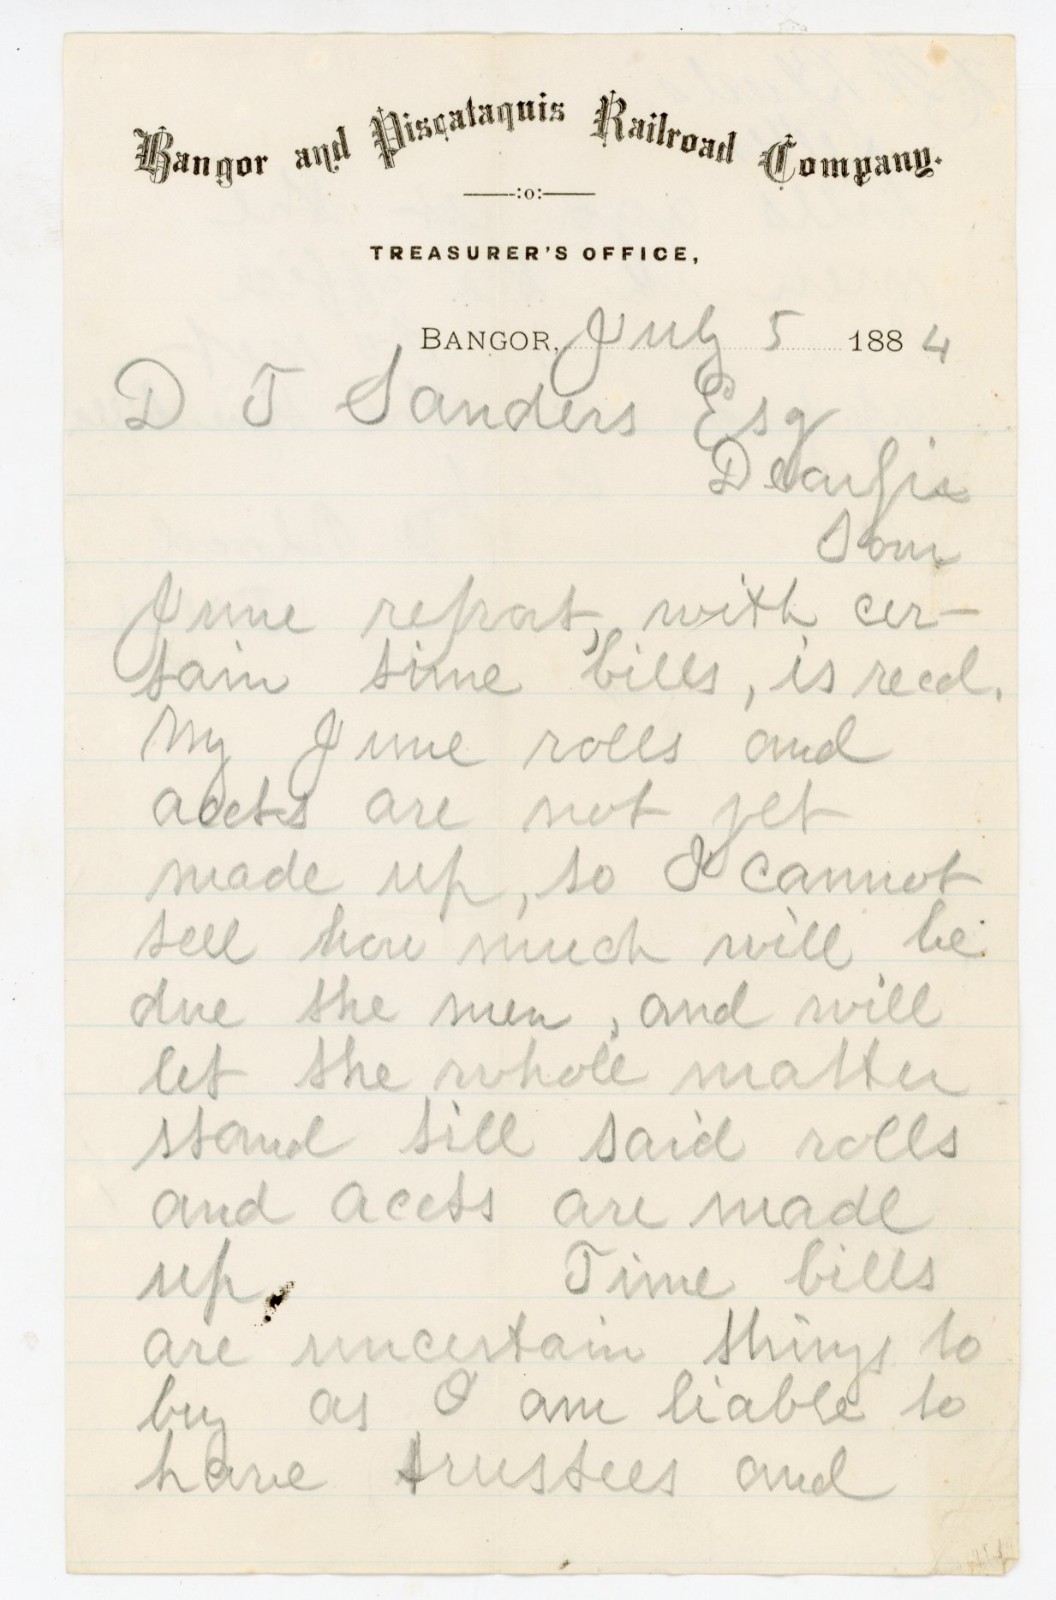 Bangor and Piscataquis Railroad Company.
:o:
TREASURER'S OFFICE,
BANGOR, July 5 1884
D T Sanders Esq
Dear Sir
Your
June report, with cer-
tain time bills, is recd.
My June rolls and
accts are not yet
made up, so I cannot
tell how much will be
due the men, and will
let the whole matter
stand till said rolls
and accts are made
up. Time bills
are uncertain things to
buy as I am liable to
have trustees and